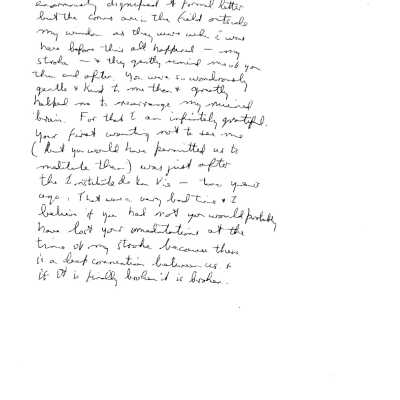 enormously dignified & formal letter
but the cows are in the field outside
my window as they were when I was
here before this all happened — my
stroke — & they gently remind me of you
then and after. You were so wondrously
gentle & kind to me then & greatly
helped me to rearrange my injured
brain. For that I am infinitely grateful.
Your first wanting not to see me
(but you would have permitted us to
meditate then) was just after
the Institute de la Vie — two years
ago. That was a very bad time & I
believe if you had not you would probably
have lost your at the
time of my stroke because there
is a deep connection between us &
if it is finally broken it is broken.